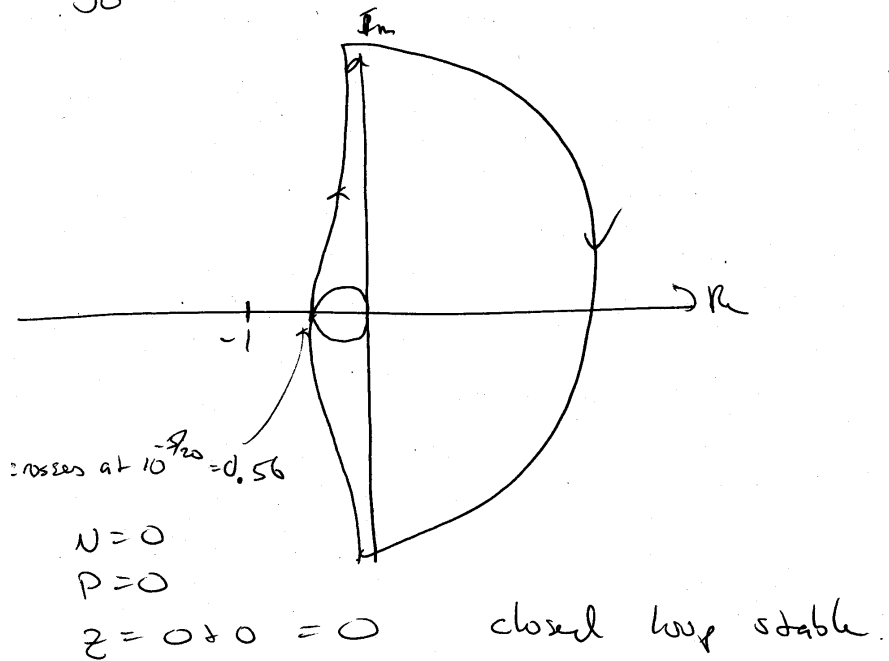 Im
Re
-1
crosses at 10^-5/20 = 0.56
N = 0
P = 0
Z = 0 + 0 = 0 closed loop stable.